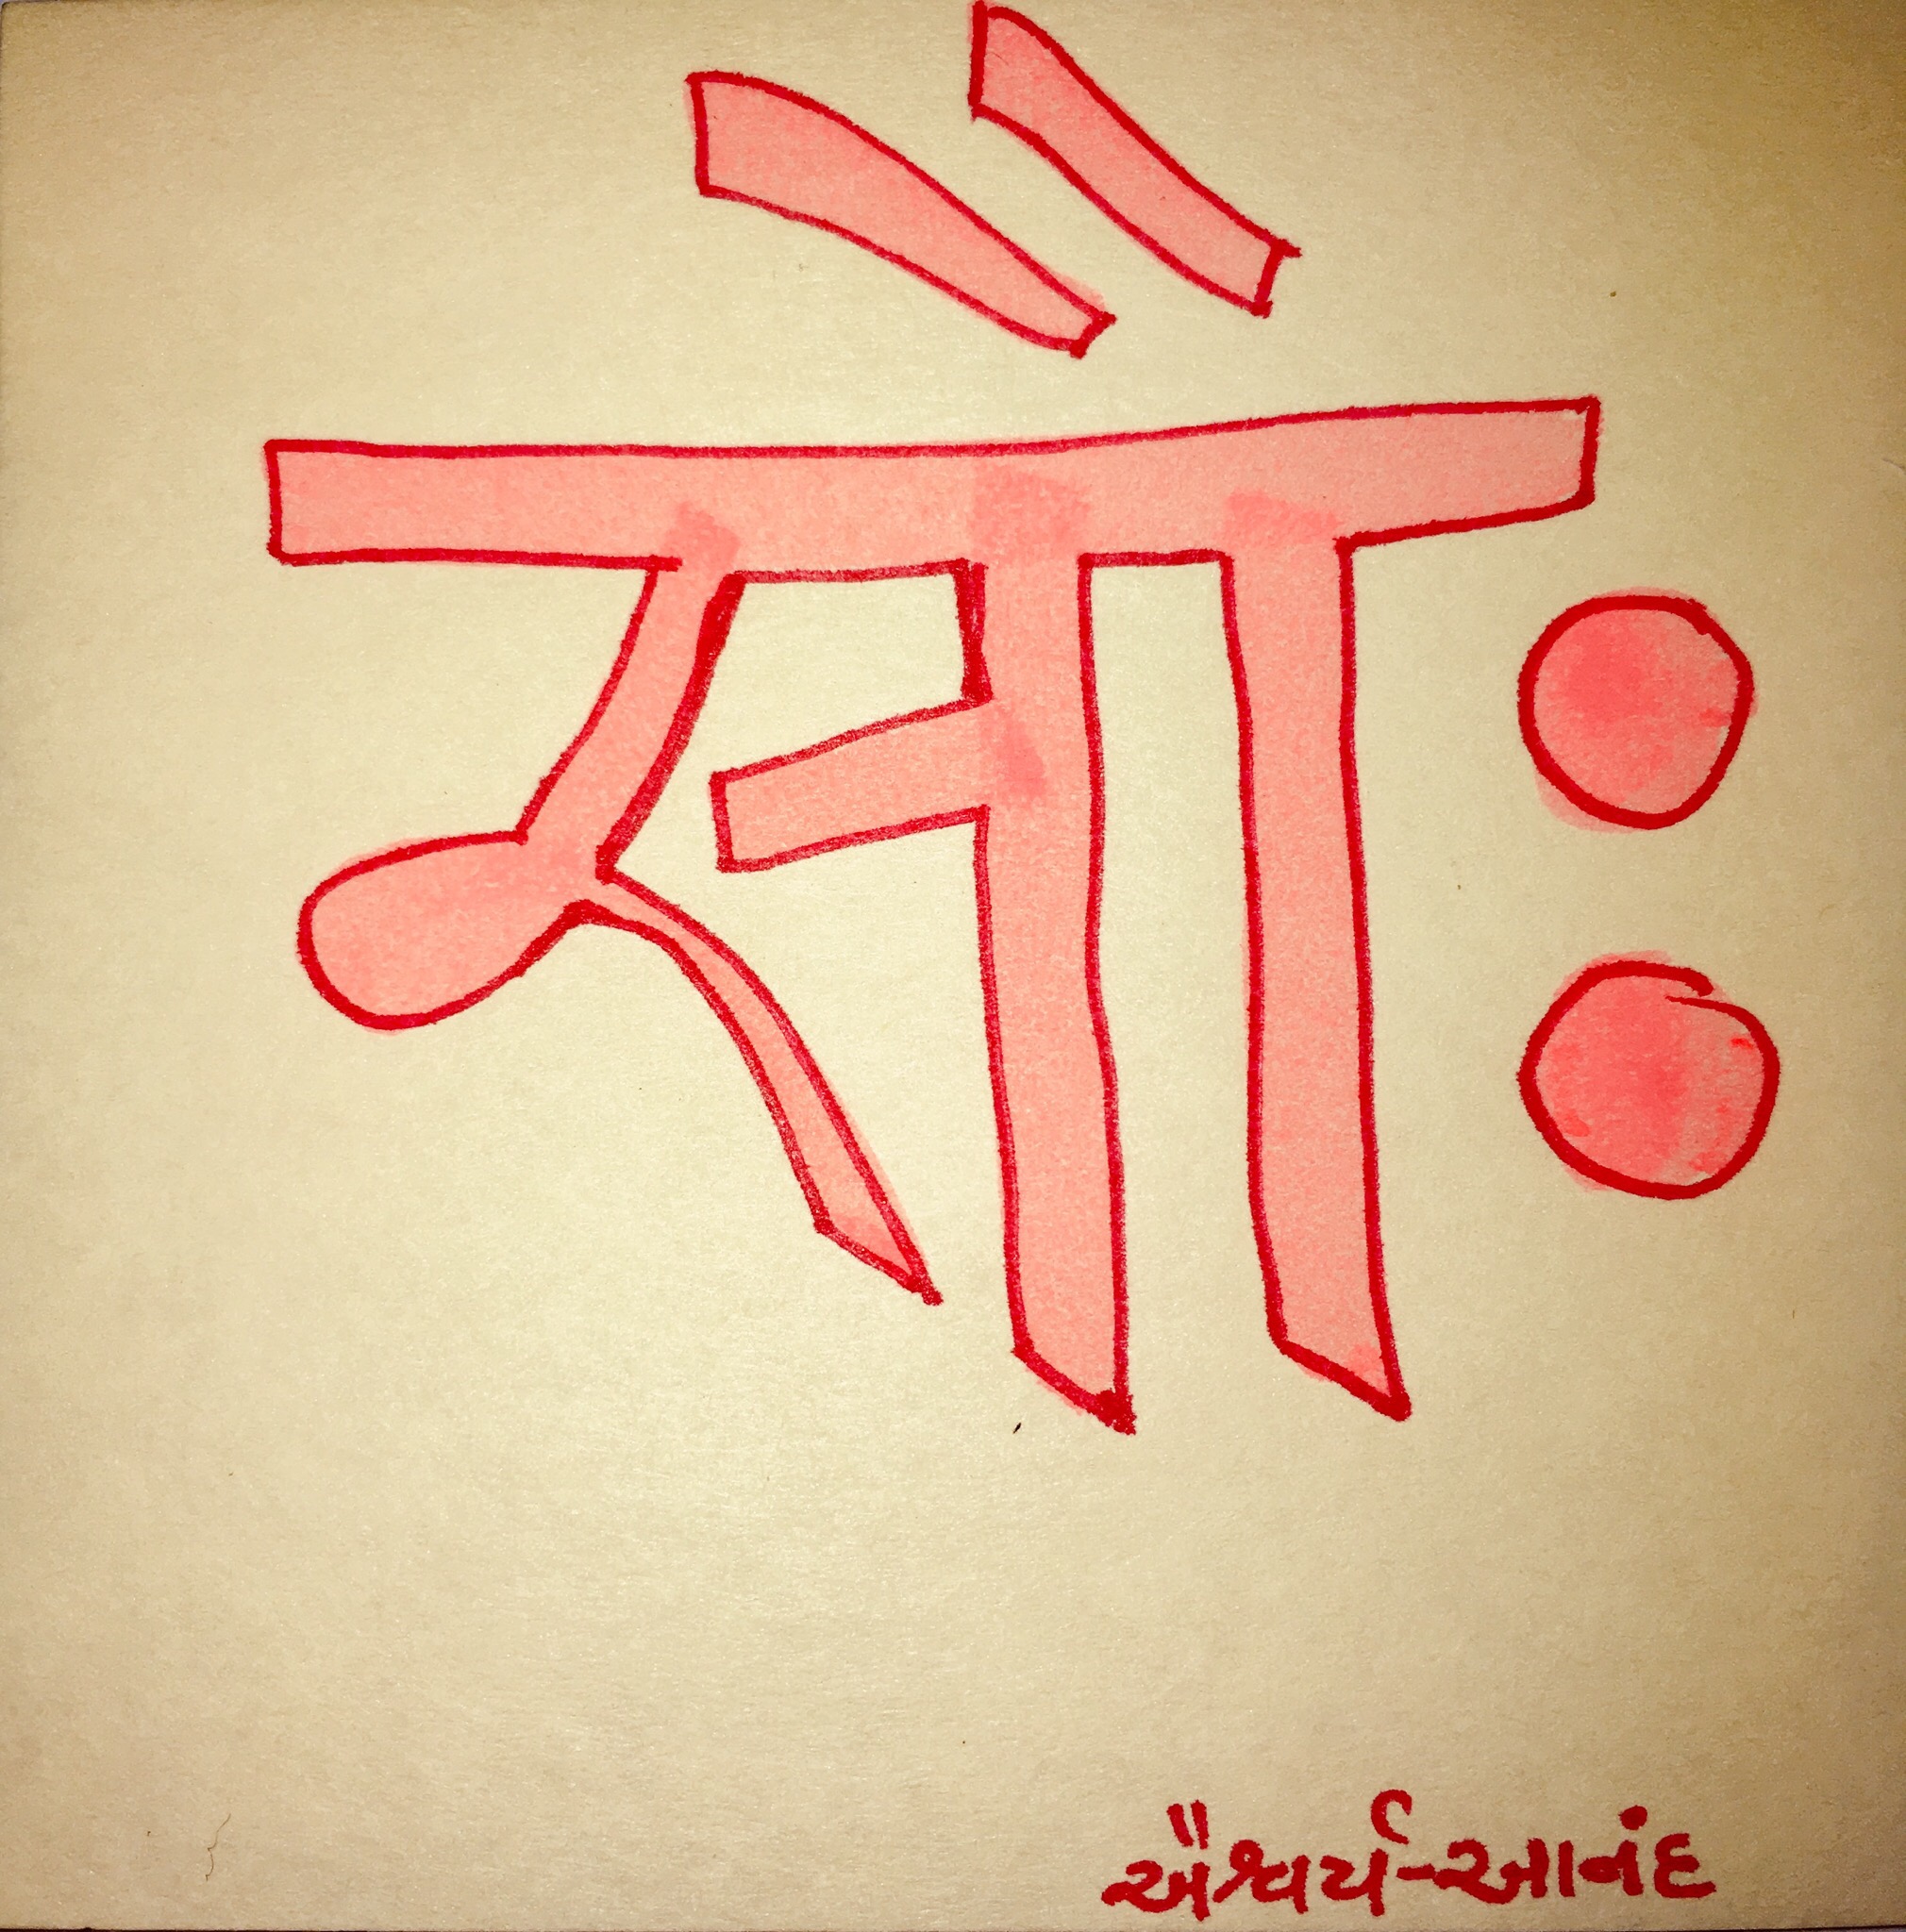 सौः
ઐશ્વર્ય-આનંદ